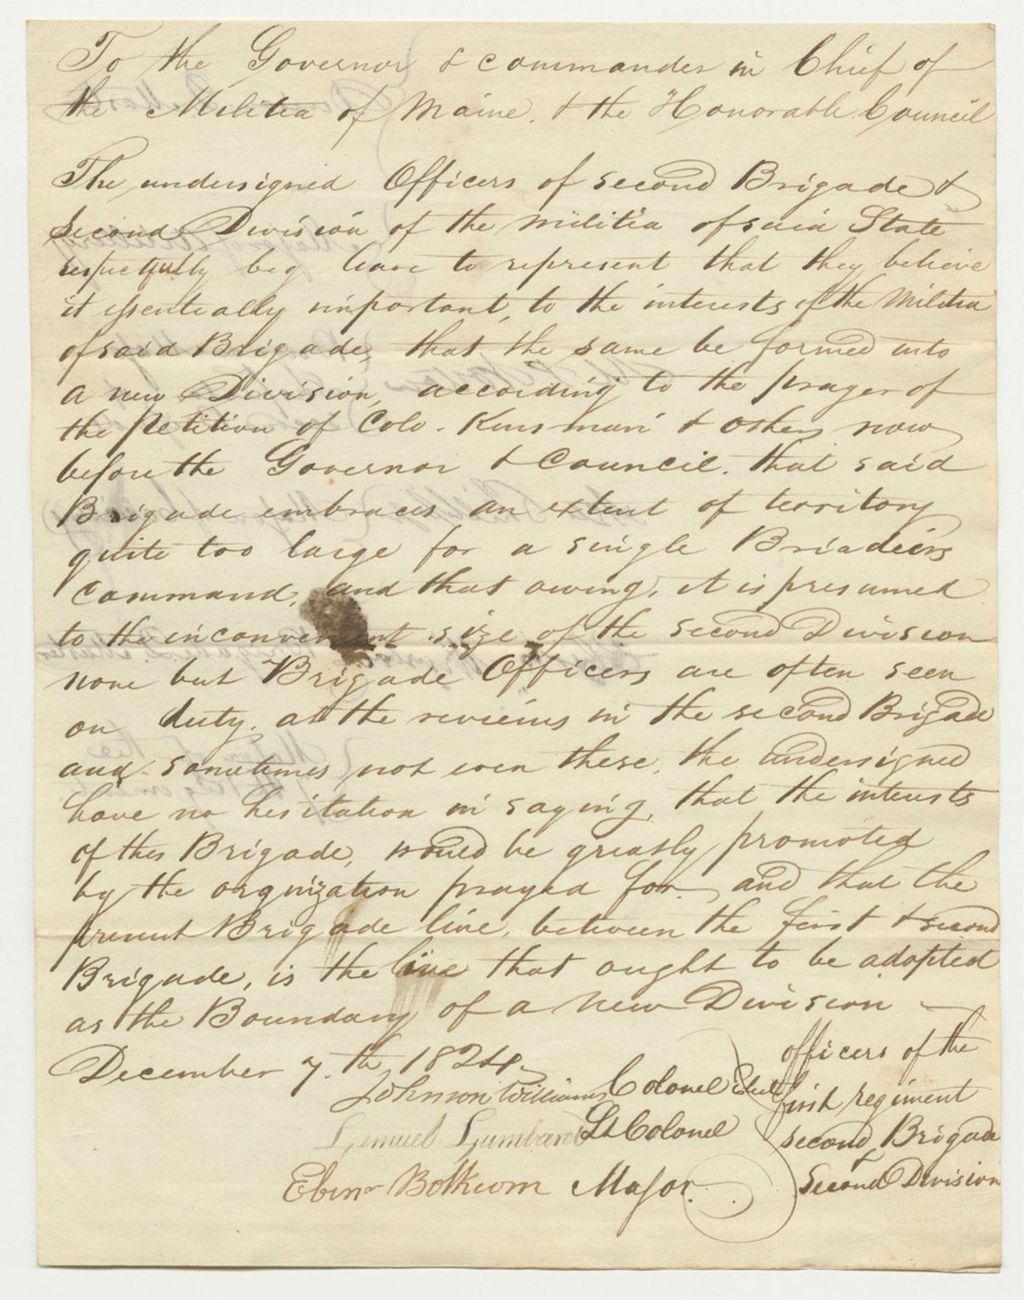 To the Governor & commander in Chief of
the Militia of Maine, & the Honorable Council
The undersigned Officers of second Brigade &
second Division of the militia of said State
respectfully beg leave to represent that they believe
it essentially important, to the interests of the Militia
of said Brigade, that the same be formed into
a new Division, according to the prayer of
the Petition of Colo. Kinsman & others now
before the Governor & Council. that said
Brigade embraces an extent of territory
quite too large for a single Briadiers
command, and that owing, it is presumed
to the inconvenient size of the second Division
none but Brigade Officers are often seen
on duty, at the reviews in the second Brigade
and sometimes not even these, the undersigned
have no hesitation in saying, that the interests
of this Brigade, would be greatly promoted
by the orgnization prayed for, and that the
present Brigade line, between the first & second
Brigade, is the line that ought to be adopted
as the Boundary of a new Division
December 7.th 1824.
Johnson Williams Colonel
Lemuel Lumbard Lt Colonel
Ebenr Major
officers of the
first regiment
second Brigade
& Second Division